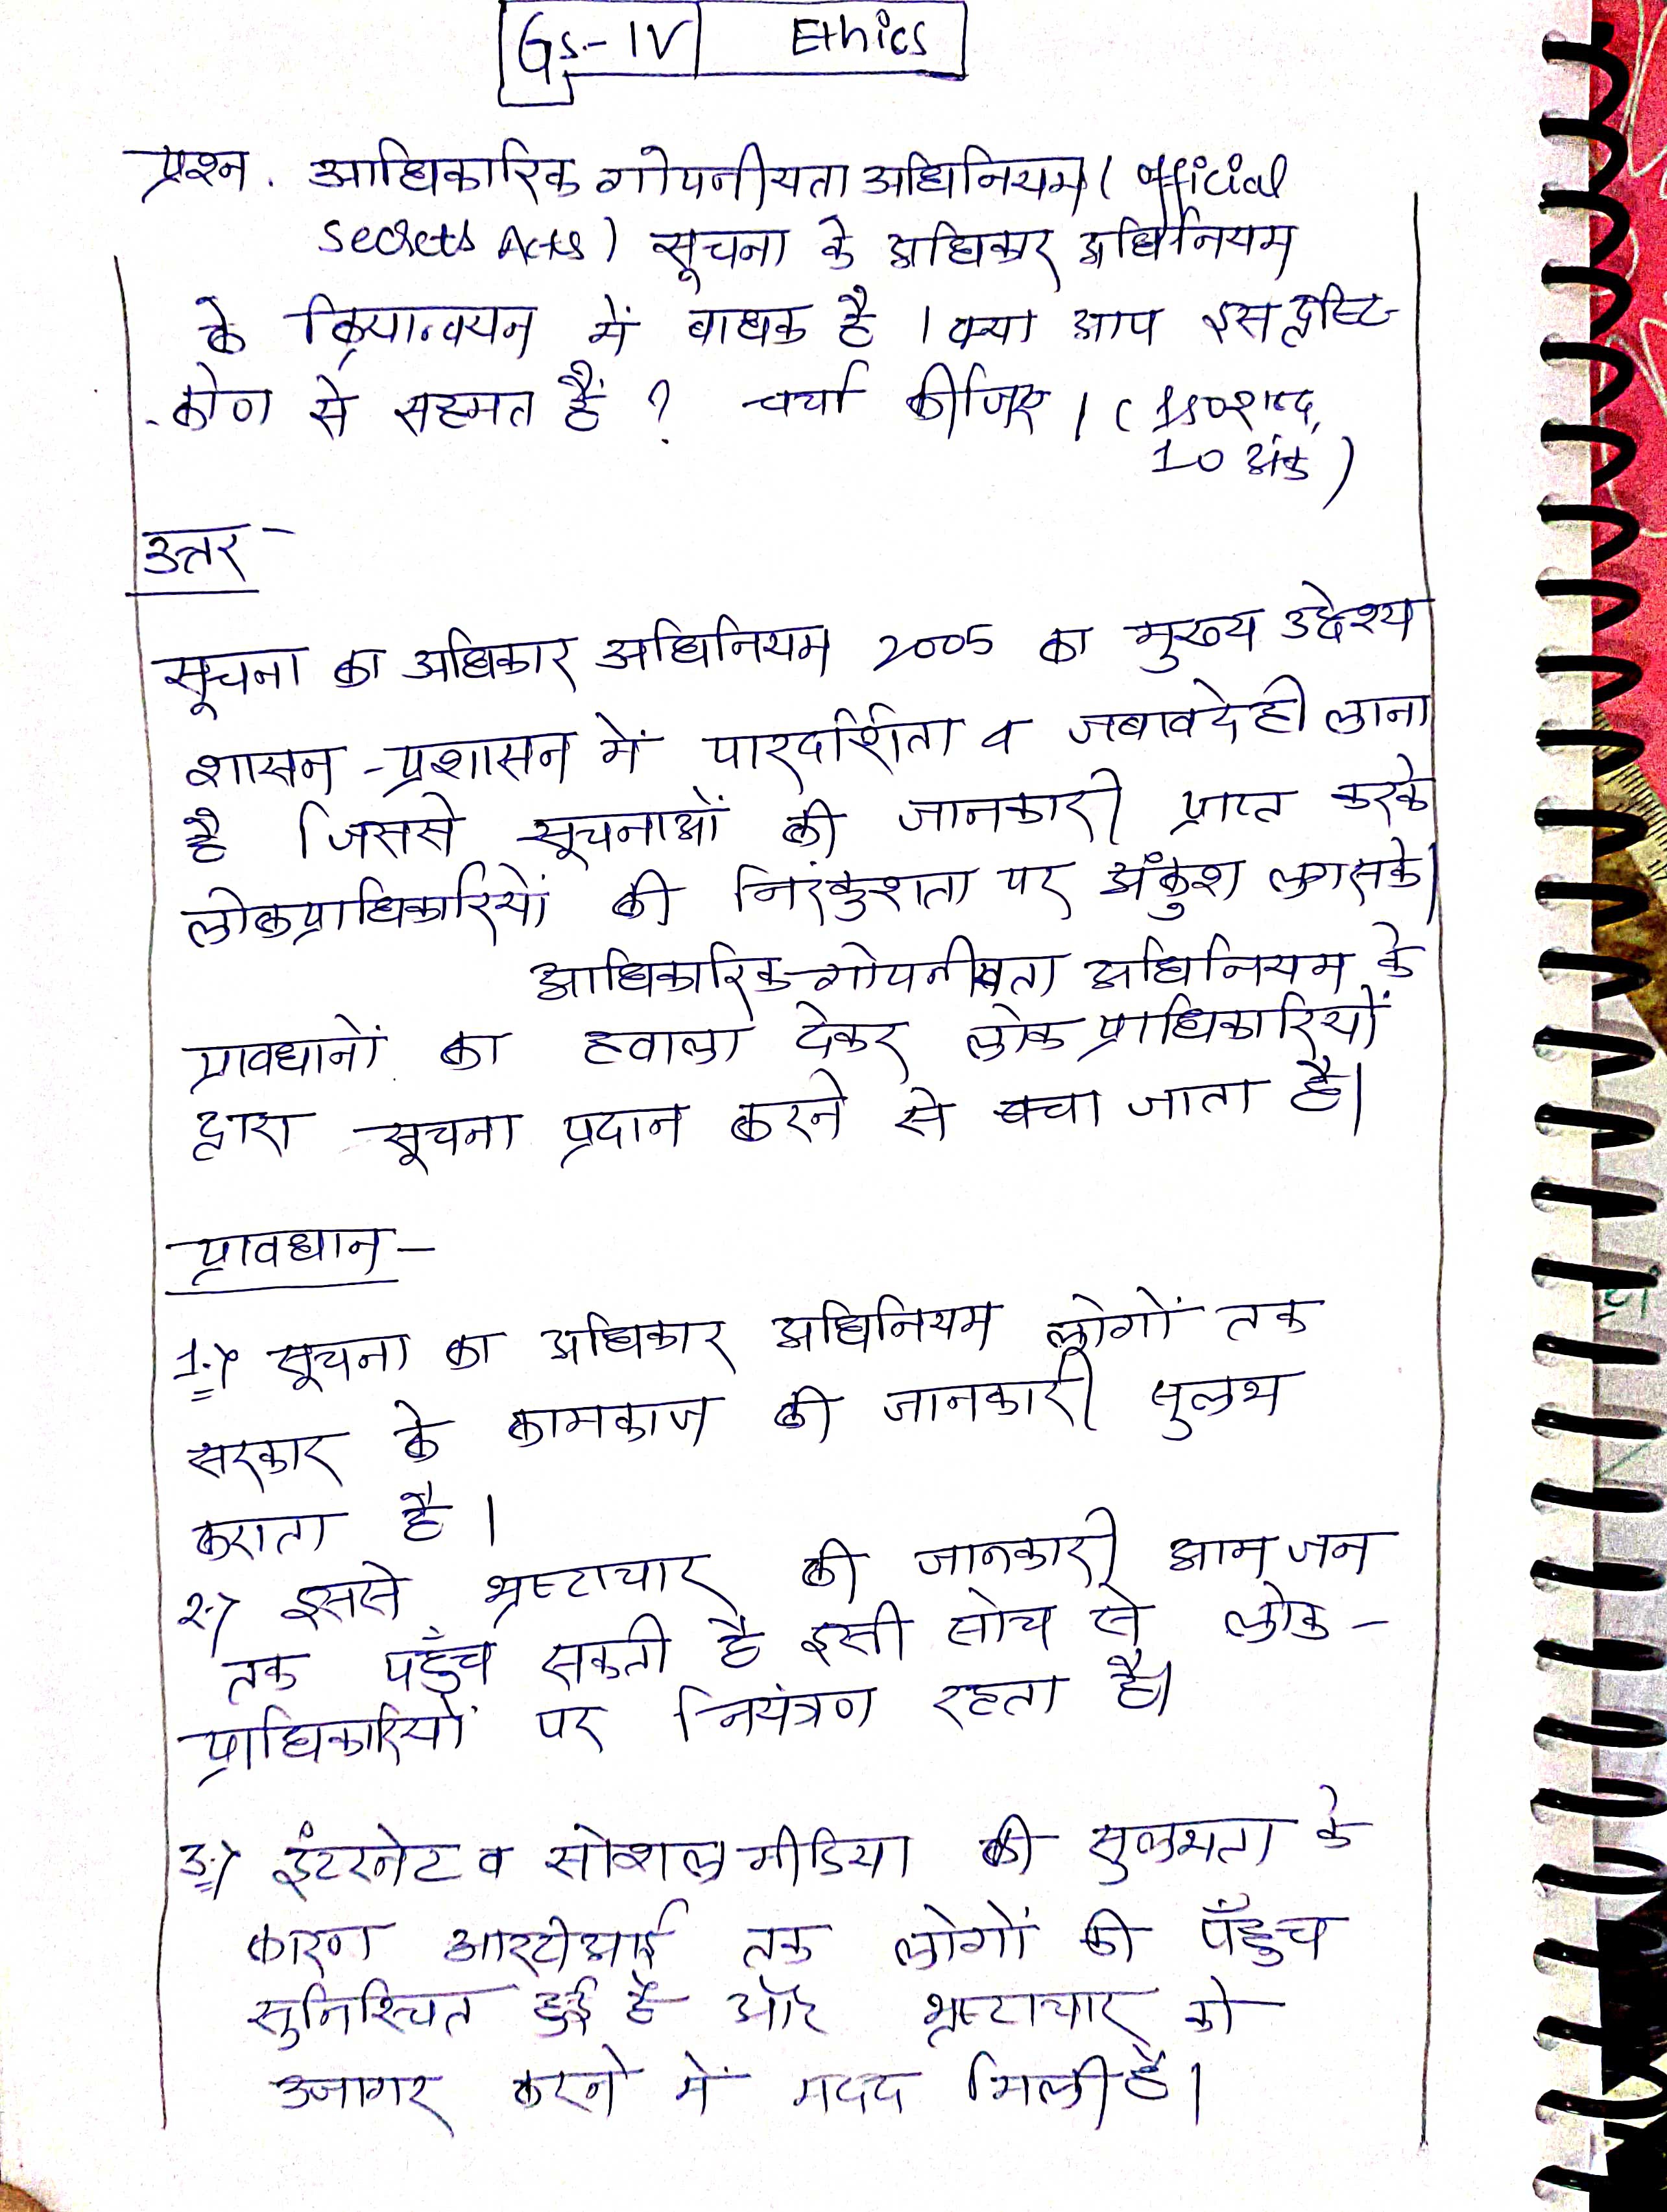 GS-IV Ethics
प्रश्न. आधिकारिक गोपनीयता अधिनियम (official
secrets Acts) सूचना के अधिकार अधिनियम
के क्रियान्वयन में बाधक है । क्या आप इस दृष्टि-
-कोण से सहमत हैं ? चर्चा कीजिए । ( 150 शब्द,
10 अंक )
उत्तर -
सूचना का अधिकार अधिनियम 2005 का मुख्य उद्देश्य
शासन - प्रशासन में पारदर्शिता व जबावदेही लाना
है जिससे सूचनाओं की जानकारी प्राप्त करके
लोकप्राधिकारियों की निरंकुशता पर अँकुश लग सके।
आधिकारिक गोपनीयता अधिनियम के
प्रावधानों का हवाला देकर लोक प्राधिकारियों
द्वारा सूचना प्रदान करने से बचा जाता है।
प्रावधान -
1.) सूचना का अधिकार अधिनियम लोगों तक
सरकार के कामकाज की जानकारी सुलभ
कराता है ।
2.) इससे भ्रष्टाचार की जानकारी आम जन
तक पहुँच सकती है इसी सोच से लोक -
प्राधिकारियों पर नियंत्रण रहता है।
3.) इंटरनेट व सोशल मीडिया की सुलभता के
कारण आरटीआई तक लोगों की पँहुच
सुनिश्चित हुई है और भ्रष्टाचार को
उजागर करने में मदद मिली है।